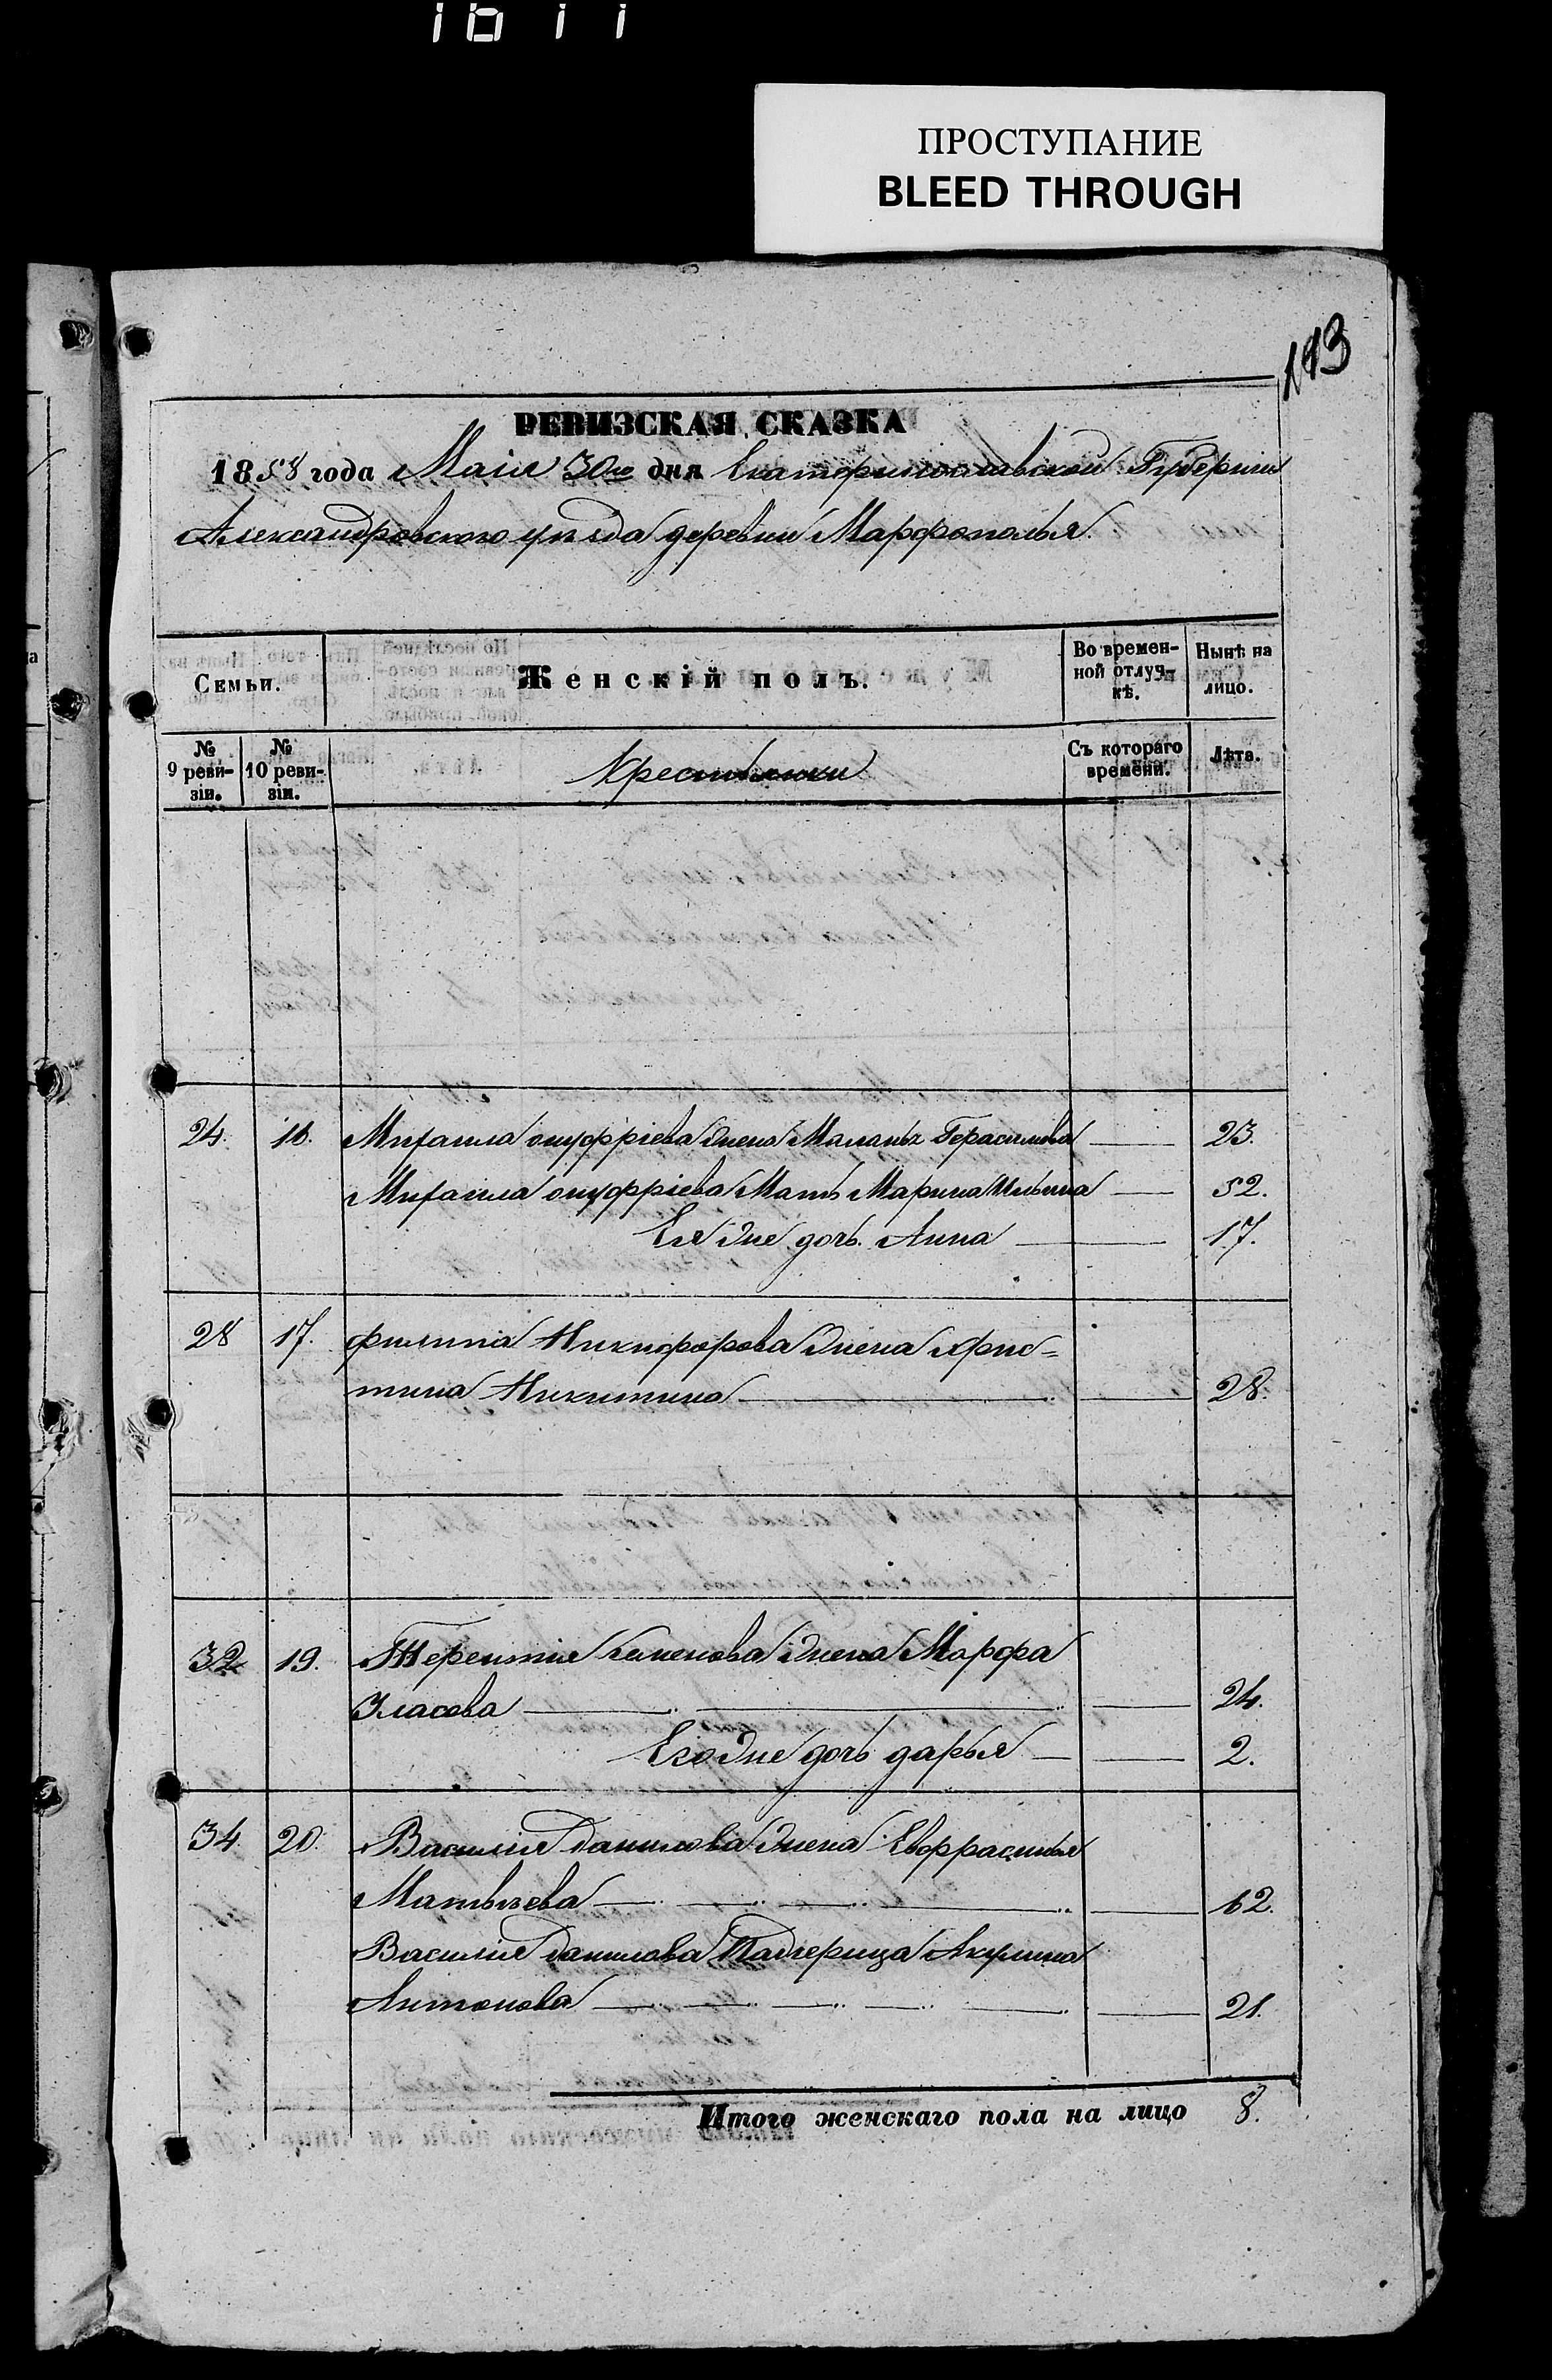 1611
ПРОСТУПАНИЕ
BLEED THROUGH
193
РЕВИЗСКАЯ СКАЗКА
1858 года Маія 30го дня Екатеринославской Губерніи
Александровского уѣзда деревни Марфополья.
Семьи.
Женскій полъ.
Во времен-
ной отлуч-
кѣ.
Нынѣ на
лицо.
№
9 реви-
зіи.
№
10 реви-
зіи.
Крестьянки
Съ котораго
времени.
Лѣта.
24. 16. Михаила онуфріева жена Маланья Герасимова 23.
Михаила онуфріева Мать Марина Ильина 52.
Ея же дочь Анна 17.
28 17. филипа Никифорова жена Хрис=
тина Никитина 28.
32 19. Терентия Семенова жена Марфа
Власова 24.
Его же дочь дарья 2.
34. 20. Василия Данилова жена Евфрасинья
Матвѣева 62.
Василия Данилова Падчерица Акулина
Антонова 21.
Итого женскаго пола на лицо 8.